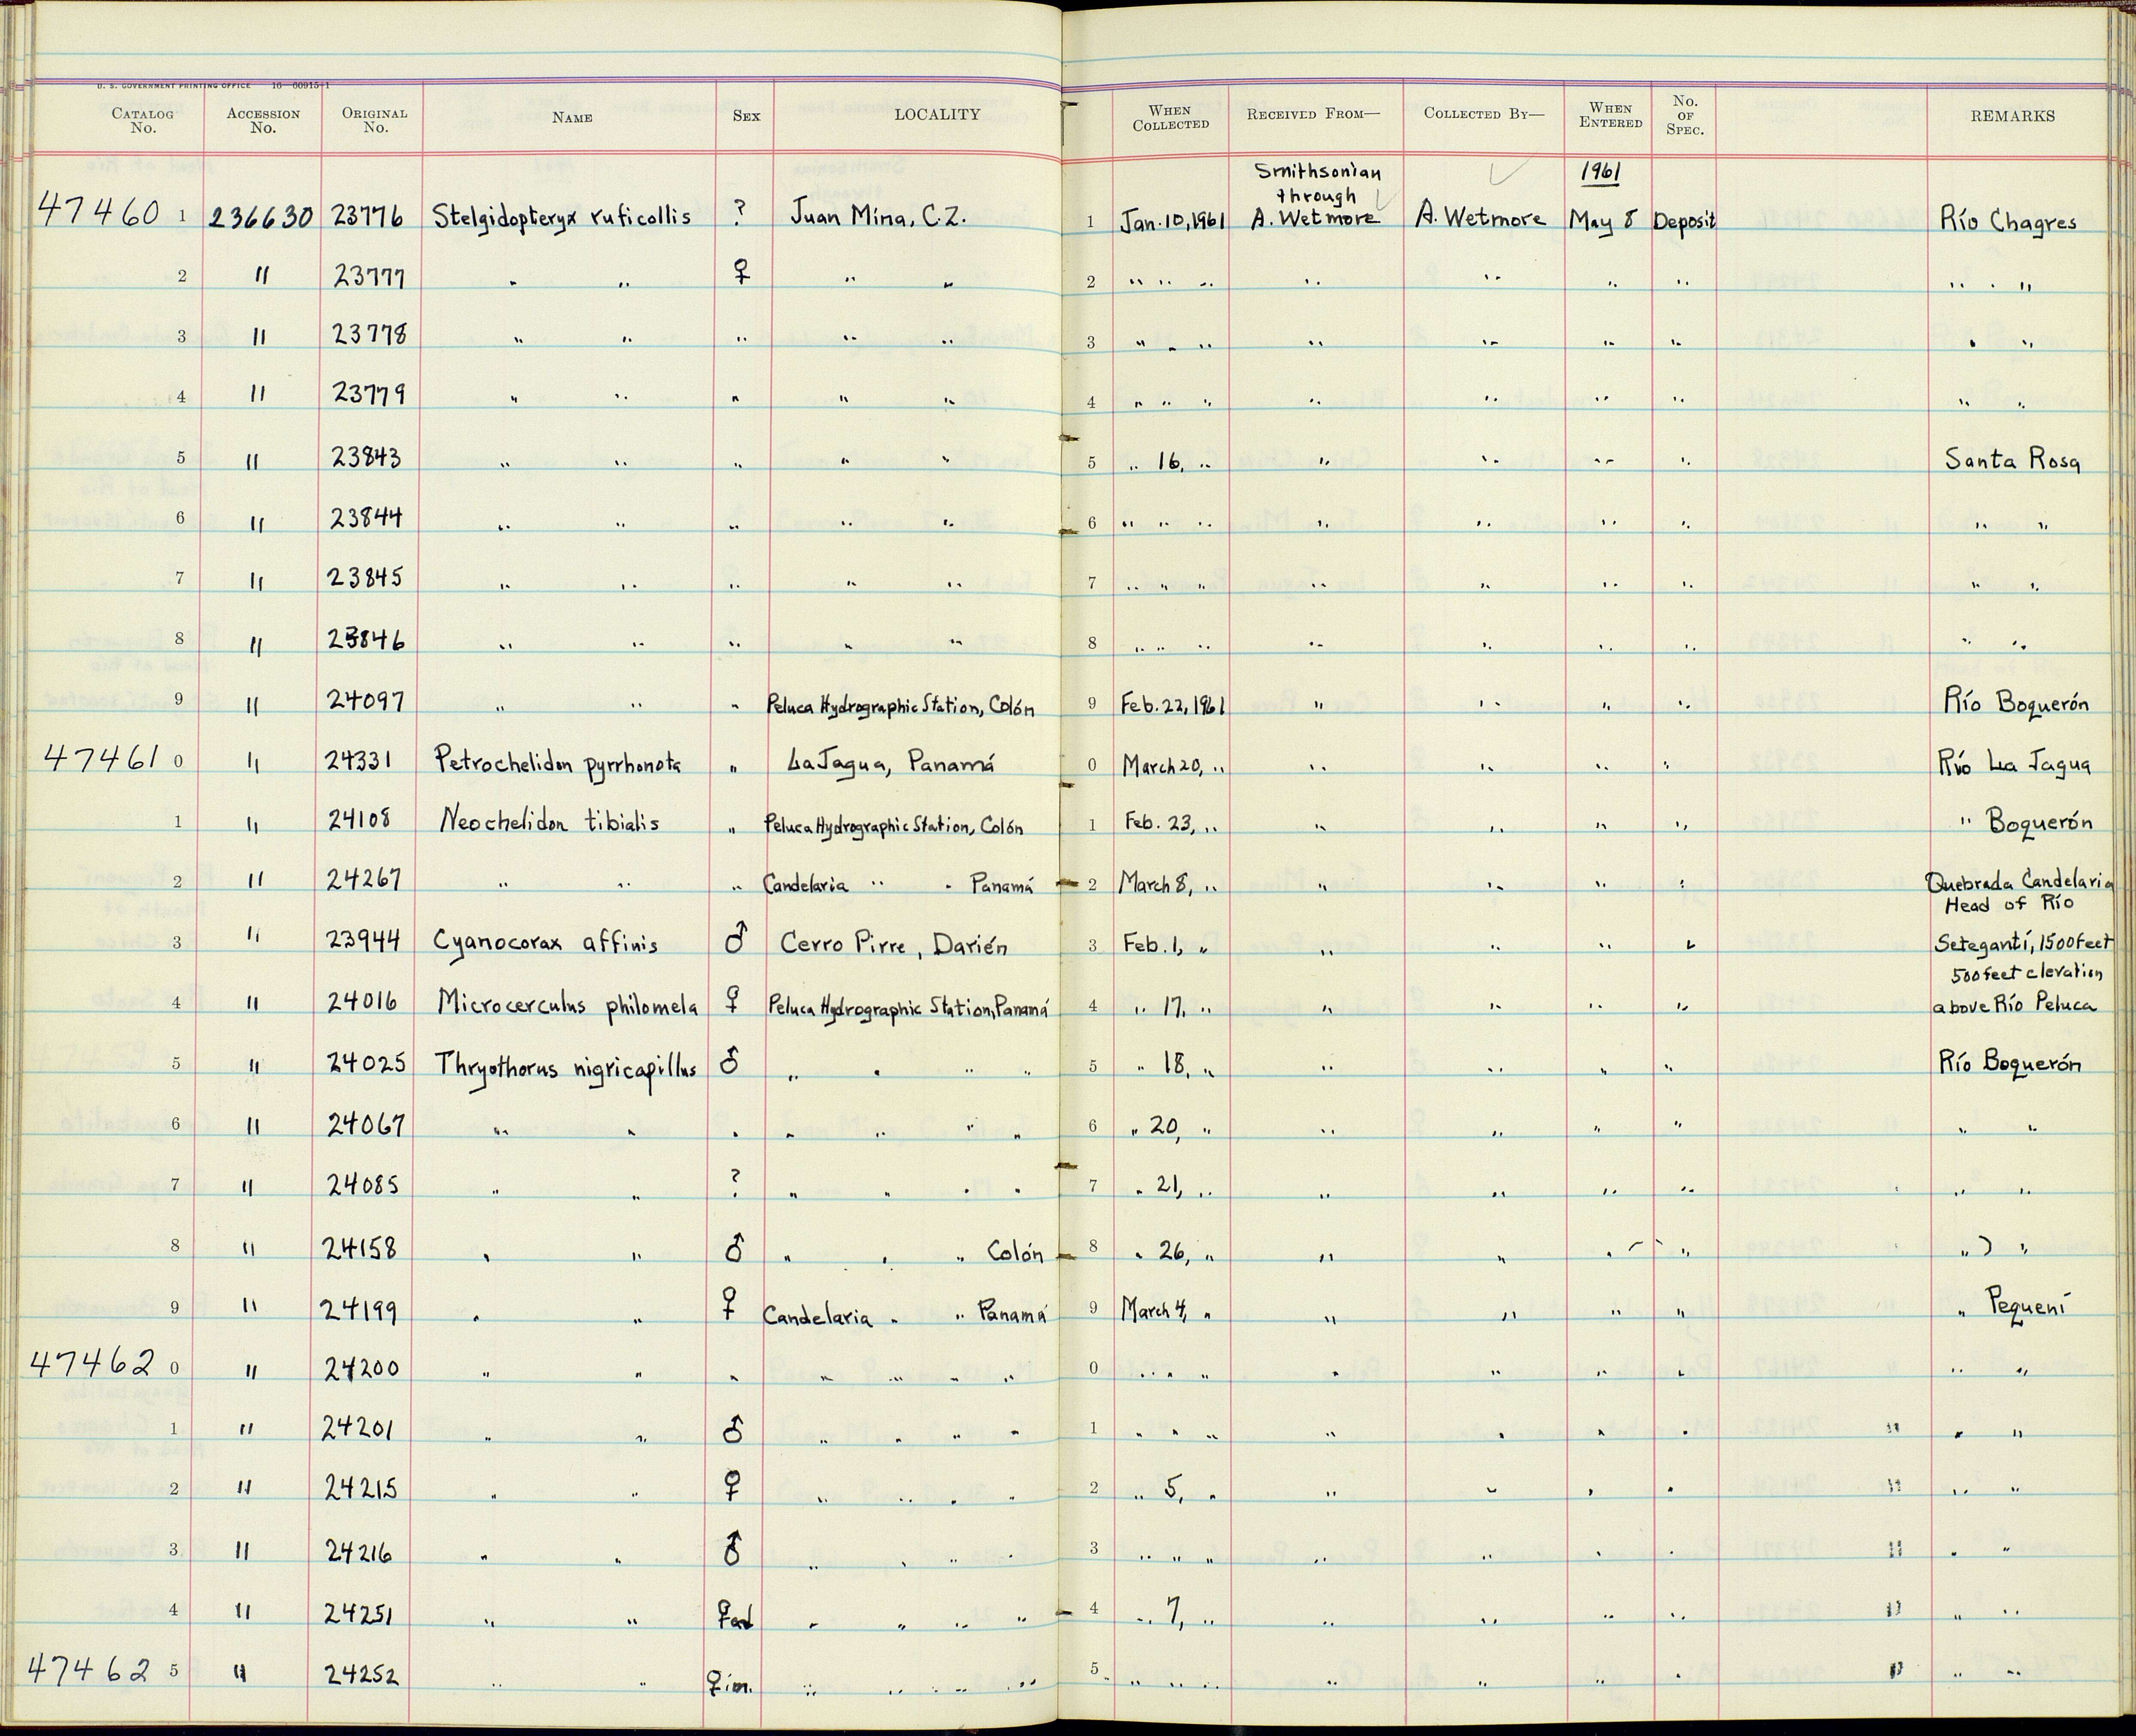 U. S. GOVERNMENT PRINTING OFFICE 16—60915-1
CATALOG No. ACCESSION No. ORIGINAL No. NAME SEX LOCALITY WHEN COLLECTED RECEIVED FROM— COLLECTED BY— WHEN ENTERED No. OF SPEC. REMARKS
Smithsonian 1961
through
47460 1 236630 23776 Stelgidopteryx ruficollis ? Juan Mina, C.Z. 1 Jan. 10, 1961 A. Wetmore A. Wetmore May 8 Deposit Río Chagres
2 " 23777 " " ♀ " " 2 " " " " " " " " " "
3 " 23778 " " " " " 3 " " " " " " " " "
4 " 23779 " " " " " 4 " " " " " " " " "
5 " 23843 " " " " " 5 " 16, " " " " " Santa Rosa
6 " 23844 " " " " " 6 " " " " " " " " "
7 " 23845 " " " " " 7 " " " " " " " " "
8 " 23846 " " " " " 8 " " " " " " " " "
9 " 24097 " " " Peluca Hydrographic Station, Colón 9 Feb. 22, 1961 " " " " Río Boquerón
47461 0 " 24331 Petrochelidon pyrrhonota " La Jagua, Panamá 0 March 20, " " " " " Río La Jagua
1 " 24108 Neochelidon tibialis " Peluca Hydrographic Station, Colón 1 Feb. 23, " " " " " " Boquerón
2 " 24267 " " " Candelaria " " Panamá 2 March 8, " " " " " Quebrada Candelaria
Head of Río
3 " 23944 Cyanocorax affinis ♂ Cerro Pirre, Darién 3 Feb. 1, " " " " " Setegantí, 1500 feet
500 feet elevation
4 " 24016 Microcerculus philomela ♀ Peluca Hydrographic Station, Panamá 4 " 17, " " " " " above Río Peluca
5 " 24025 Thryothorus nigricapillus ♂ " " " " 5 " 18, " " " " " Río Boquerón
6 " 24067 " " " " " " " 6 " 20, " " " " " " "
7 " 24085 " " ? " " " " 7 " 21, " " " " " " "
8 " 24158 " " ♂ " " " Colón 8 " 26, " " " " " " "
9 " 24199 " " ♀ Candelaria " " Panamá 9 March 4, " " " " " " Pequení
47462 0 " 24200 " " " " " " " 0 " " " " " " " " "
1 " 24201 " " ♂ " " " " 1 " " " " " " " " " "
2 " 24215 " " ♀ " " " " 2 " 5, " " " " " " " "
3 " 24216 " " ♂ " " " " 3 " " " " " " " " " "
4 " 24251 " " ♀ad " " " " 4 " 7, " " " " " " " "
47462 5 " 24252 " " ♀im. " " " " 5 " " " " " " " " " "